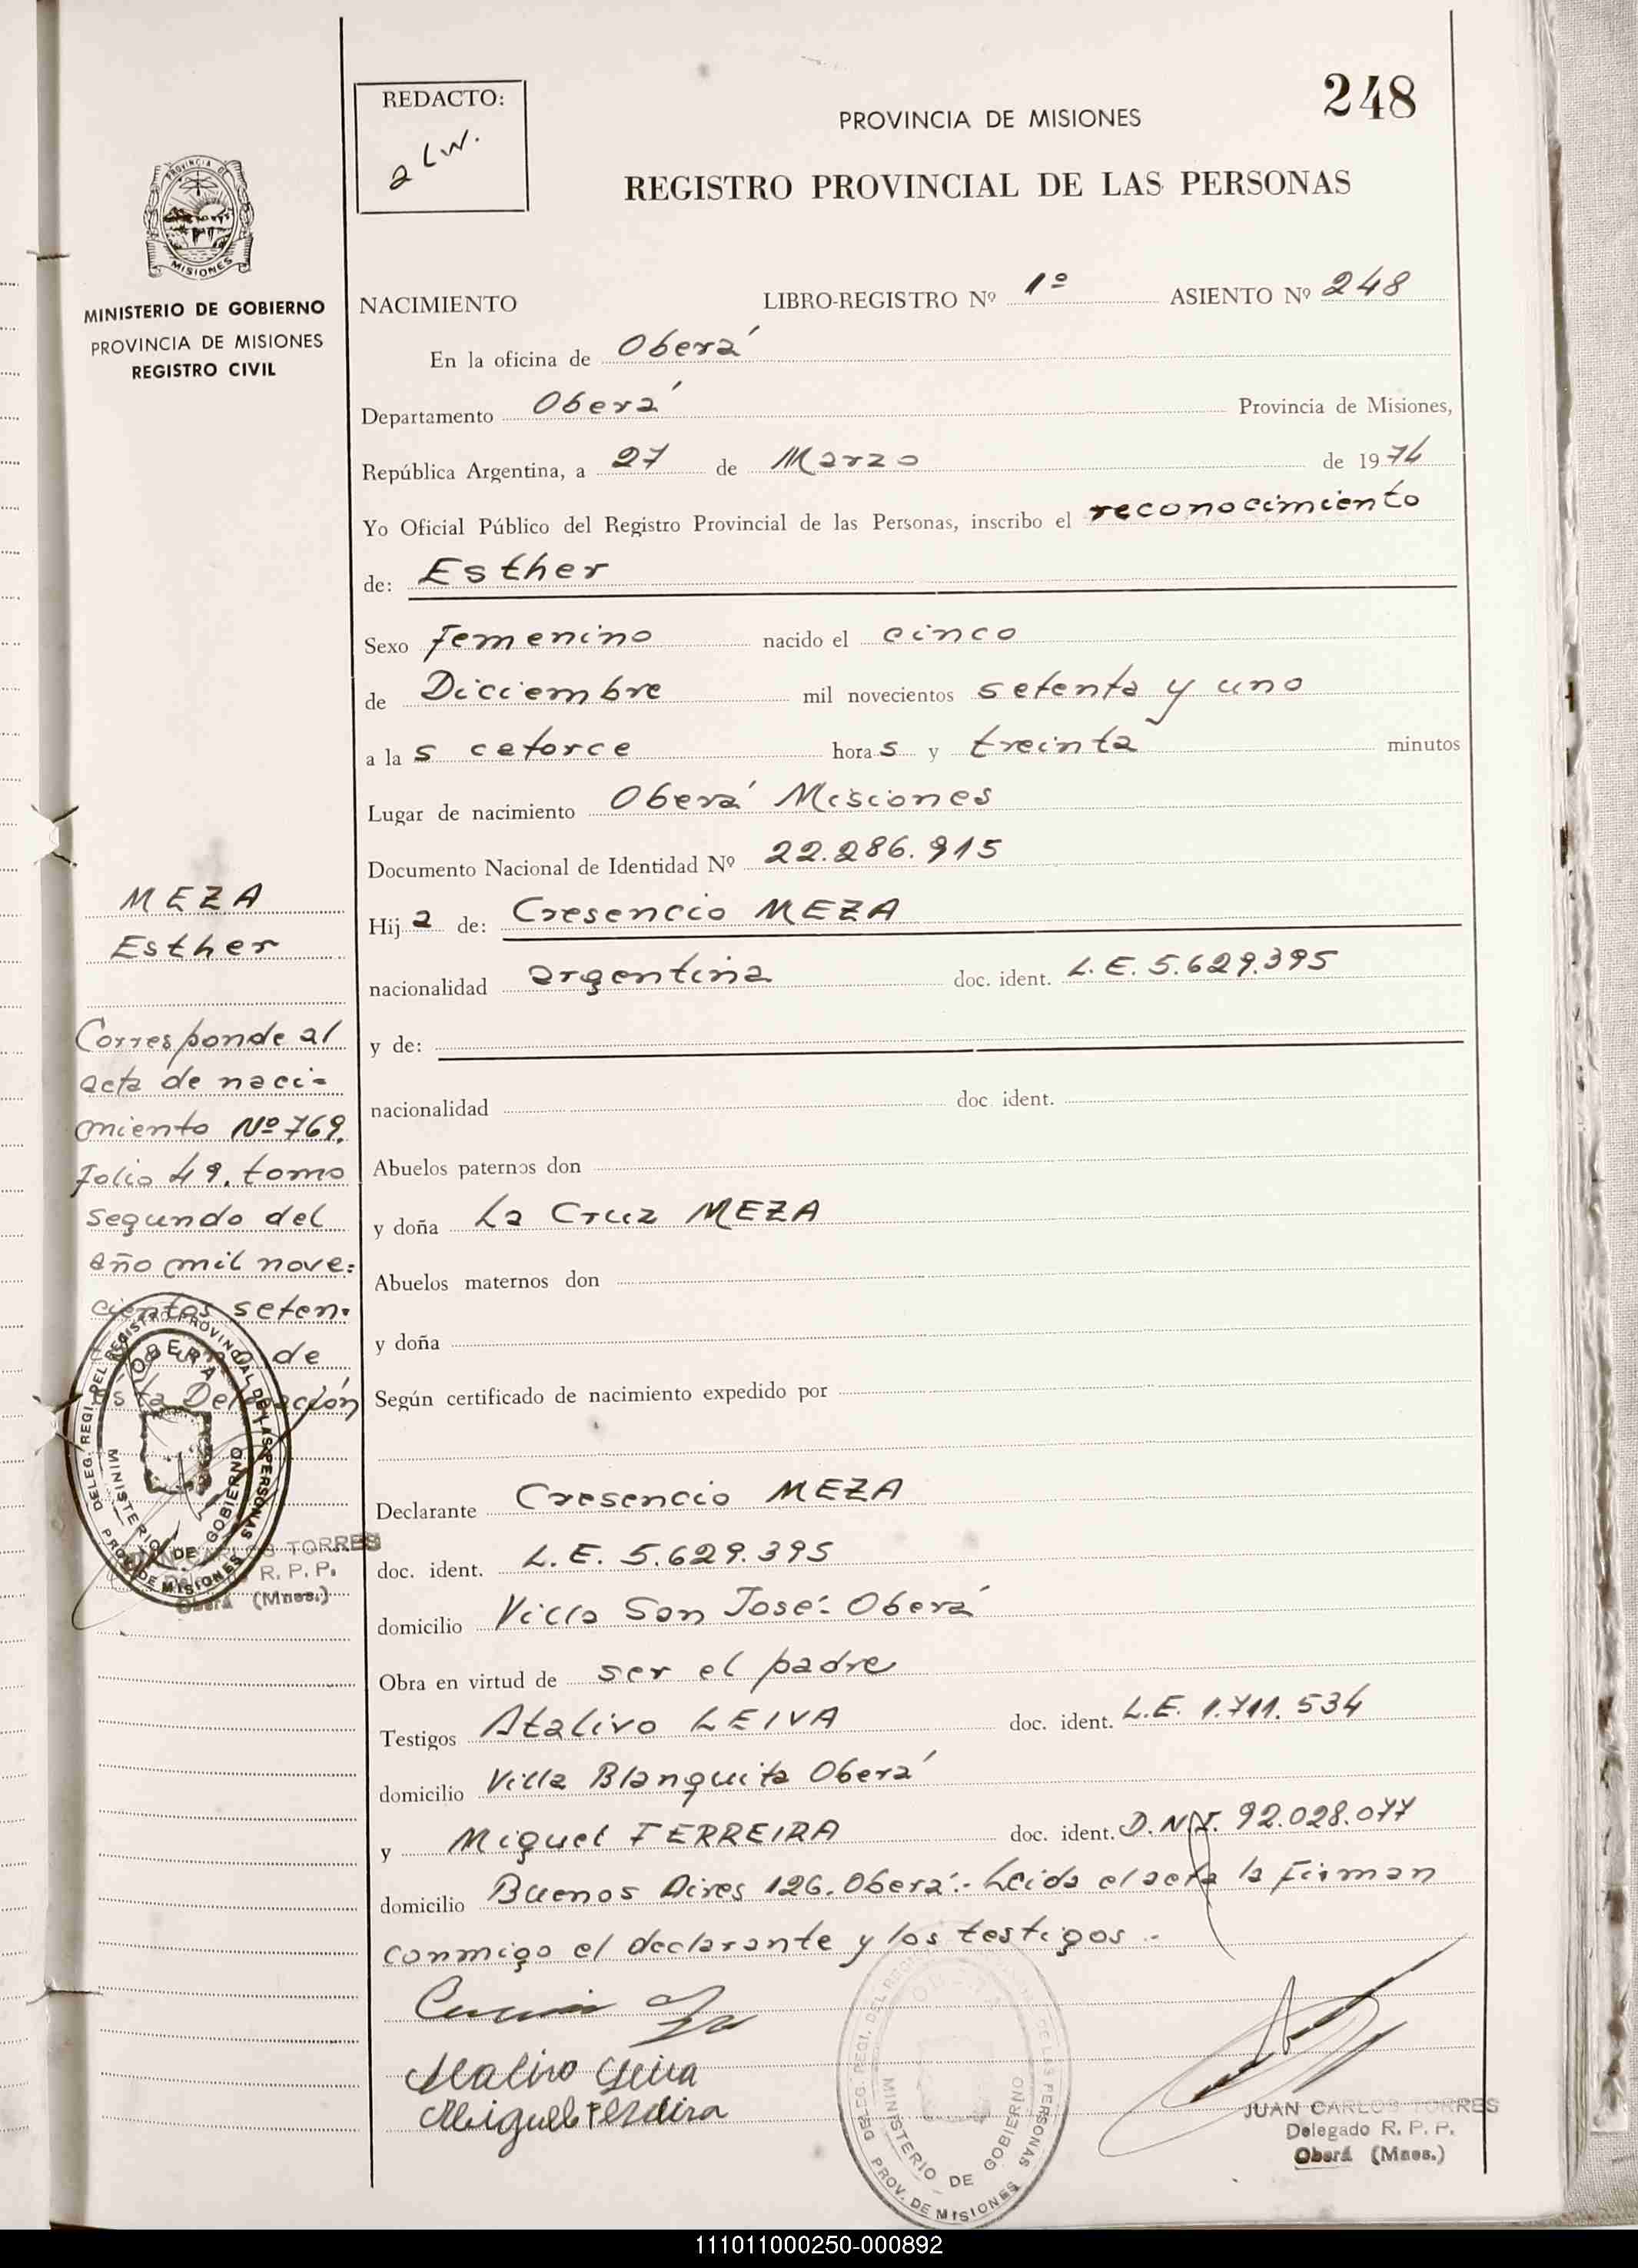 248
REDACTO:
PROVINCIA DE MISIONES
REGISTRO PROVINCIAL DE LAS PERSONAS
PROVINCIA DE
MISIONES
MINISTERIO DE GOBIERNO
PROVINCIA DE MISIONES
REGISTRO CIVIL
NACIMIENTO LIBRO-REGISTRO Nº 1º ASIENTO Nº 248
En la oficina de Oberá
Departamento Oberá Provincia de Misiones,
República Argentina, a 27 de Marzo de 1974
Yo Oficial Público del Registro Provincial de las Personas, inscribo el reconocimiento
de: Esther
Sexo Femenino nacido el cinco
de Diciembre mil novecientos setenta y uno
a las catorce horas y treinta minutos
Lugar de nacimiento Oberá Misiones
Documento Nacional de Identidad Nº 22.286.915
Hija de: Cresencio MEZA
nacionalidad argentina doc. ident. L.E. 5.629.395
y de:
nacionalidad doc ident.
Abuelos paternos don
y doña La Cruz MEZA
Abuelos maternos don
y doña
Según certificado de nacimiento expedido por
Declarante Cresencio MEZA
doc. ident. L.E. 5.629.395
domicilio Villa San José: Oberá
Obra en virtud de ser el padre
Testigos Atalivo LEIVA doc. ident. L.E. 1.711.534
domicilio Villa Blanquita Oberá
y Miguel FERREIRA doc. ident. D.N.I. 92.028.077
domicilio Buenos Aires 126. Oberá.- Leida el acta la firman
conmigo el declarante y los testigos.-
MEZA
Esther
Corresponde al
acta de naci-
miento Nº 769.
Folio 49. tomo
segundo del
año mil nove=
cientos seten-
de
esta Delegación
DELEG. REGI. DEL REGISTRO PROVINCIAL DE LAS PERSONAS
OBERA
MINISTERIO DE GOBIERNO
PROV. DE MISIONES
JUAN CARLOS TORRES
Delegado R. P. P.
Oberá (Mnes.)
Atalivo Leiva
Miguel Ferreira
DELEG. REGI. DEL REGISTRO PROVINCIAL DE LAS PERSONAS
MINISTERIO DE GOBIERNO
PROV. DE MISIONES
JUAN CARLOS TORRES
Delegado R. P. P.
Oberá (Mnes.)
111011000250-000892